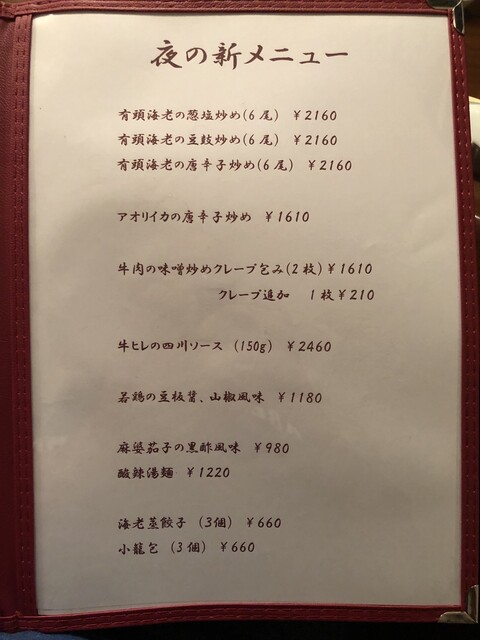 夜の新メニュー
有頭海老の葱塩炒め(6尾) ¥2160
有頭海老の豆鼓炒め(6尾) ¥2160
有頭海老の唐辛子炒め(6尾) ¥2160
アオリイカの唐辛子炒め ¥1610
牛肉の味噌炒めクレープ包み(2枚)¥1610
クレープ追加 1枚¥210
牛ヒレの四川ソース (150g) ¥2460
若鶏の豆板醤、山椒風味 ¥1180
麻婆茄子の黒酢風味 ¥980
酸辣湯麺 ¥1220
海老蒸餃子 (3個) ¥660
小龍包 (3個) ¥660